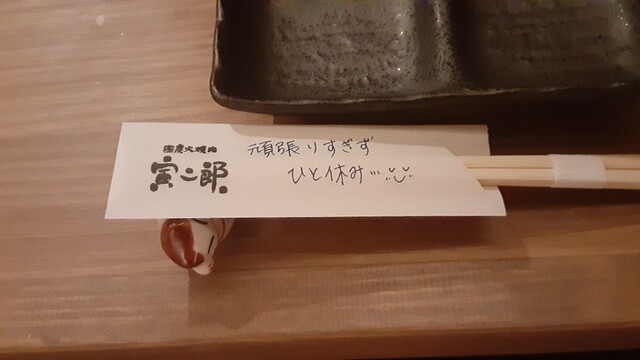 炭火焼肉
寅二郎
頑張りすぎず
ひと休み…